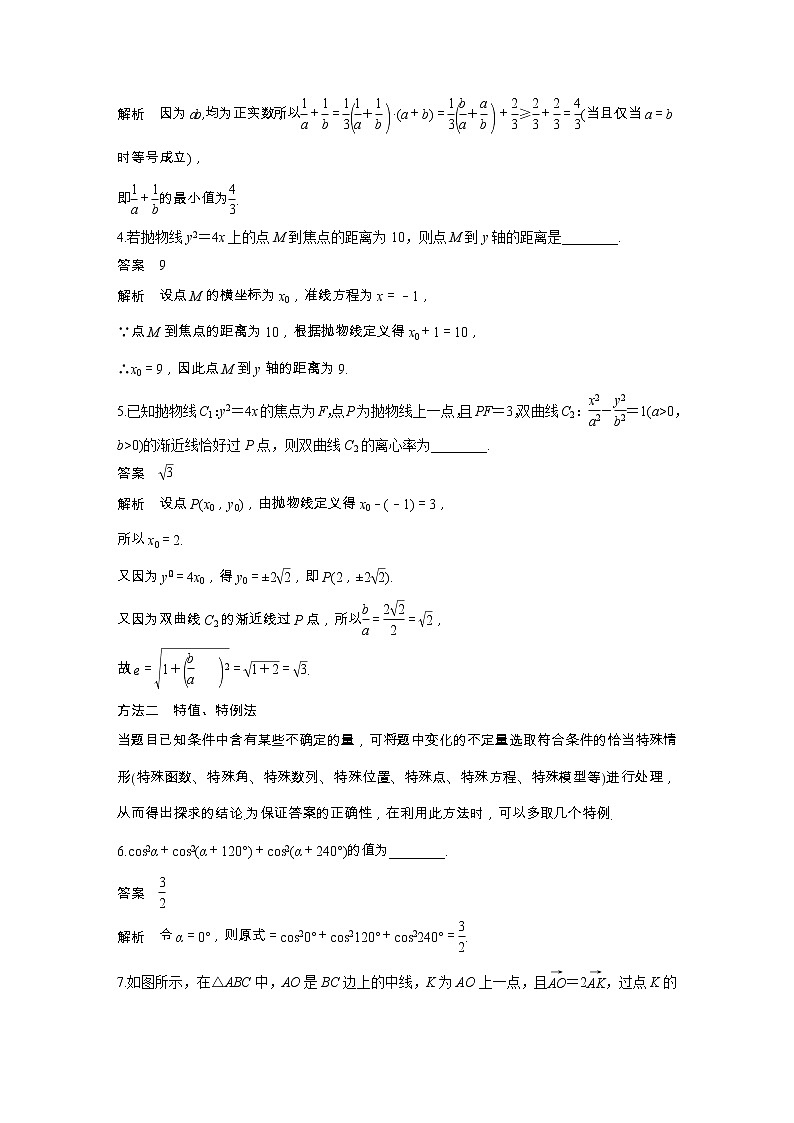 解析　因为 a,b 均为正实数,所以1/a＋1/b＝1/3(1/a＋1/b)·(a＋b)＝1/3(b/a＋a/b)＋2/3≥2/3＋2/3＝4/3(当且仅当 a＝b
时等号成立)，
即1/a＋1/b的最小值为4/3.
4.若抛物线 y²＝4x 上的点 M 到焦点的距离为 10，则点 M 到 y 轴的距离是________.
答案　9
解析　设点 M 的横坐标为 x₀，准线方程为 x＝－1，
∵点 M 到焦点的距离为 10，根据抛物线定义得 x₀＋1＝10，
∴x₀＝9，因此点 M 到 y 轴的距离为 9.
5.已知抛物线 C₁:y²＝4x 的焦点为 F,点 P 为抛物线上一点,且 PF＝3,双曲线 C₂：x²/a²－y²/b²＝1(a>0，
b>0)的渐近线恰好过 P 点，则双曲线 C₂ 的离心率为________.
答案　√3
解析　设点 P(x₀，y₀)，由抛物线定义得 x₀－(－1)＝3，
所以 x₀＝2.
又因为 y₀²＝4x₀，得 y₀＝±2√2，即 P(2，±2√2).
又因为双曲线 C₂ 的渐近线过 P 点，所以b/a＝2√2/2＝√2，
故 e＝√(1＋(b/a)²)＝√(1＋2)＝√3.
方法二　特值、特例法
当题目已知条件中含有某些不确定的量，可将题中变化的不定量选取符合条件的恰当特殊情
形(特殊函数、特殊角、特殊数列、特殊位置、特殊点、特殊方程、特殊模型等)进行处理，
从而得出探求的结论.为保证答案的正确性，在利用此方法时，可以多取几个特例.
6.cos²α＋cos²(α＋120°)＋cos²(α＋240°)的值为________.
答案　3/2
解析　令 α＝0°，则原式＝cos²0°＋cos²120°＋cos²240°＝3/2.
7.如图所示，在△ABC 中，AO 是 BC 边上的中线，K 为 AO 上一点，且AO→＝2AK→，过点 K 的